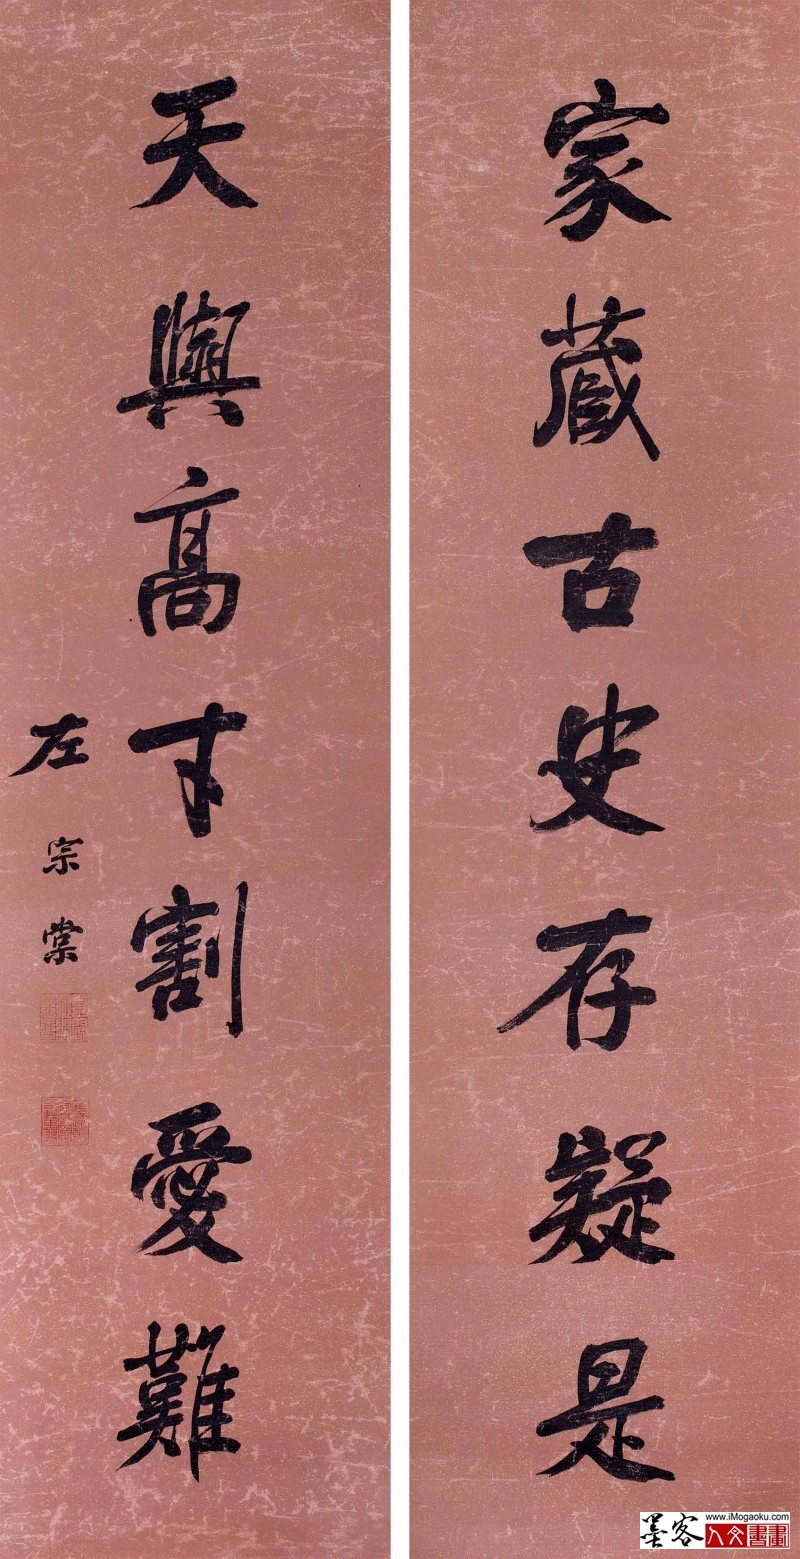 家藏古史存疑是
天與高才割愛難
左宗棠
www.iMogaoku.com
墨客
人文書畫